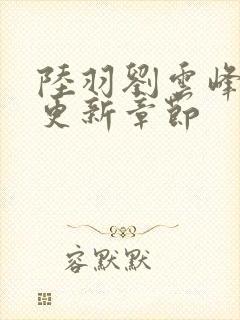 陸羽劉雲峰
更新章節
容默默